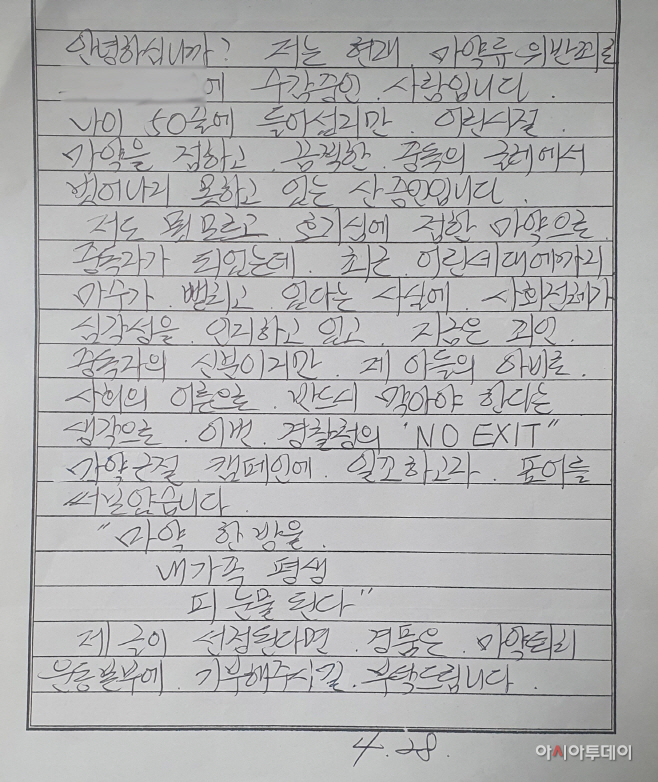 안녕하십니까? 저는 현재 마약류위반죄로
에 수감중인 사람입니다.
나이 50줄에 들어섰지만 어린시절
마약을 접하고 끔찍한 중독의 굴레에서
벗어나지 못하고 있는 산 증인입니다.
저도 뭣모르고 호기심에 접한 마약으로
중독자가 되었는데 최근 어린세대에까지
마수가 뻗치고 있다는 사실에 사회전체가
심각성을 인지하고 있고 지금은 죄인
중독자의 신분이지만 제 아들의 아비로
사회의 어른으로 반드시 막아야 한다는
생각으로 이번 경찰청의 'NO EXIT"
마약근절 캠페인에 일조하고자 표어를
써보았습니다.
"마약 한 방울
내가족 평생
피눈물 된다"
제 글이 선정된다면 경품은 마약퇴치
운동본부에 기부해주시길 부탁드립니다.
4. 28.
아시아투데이